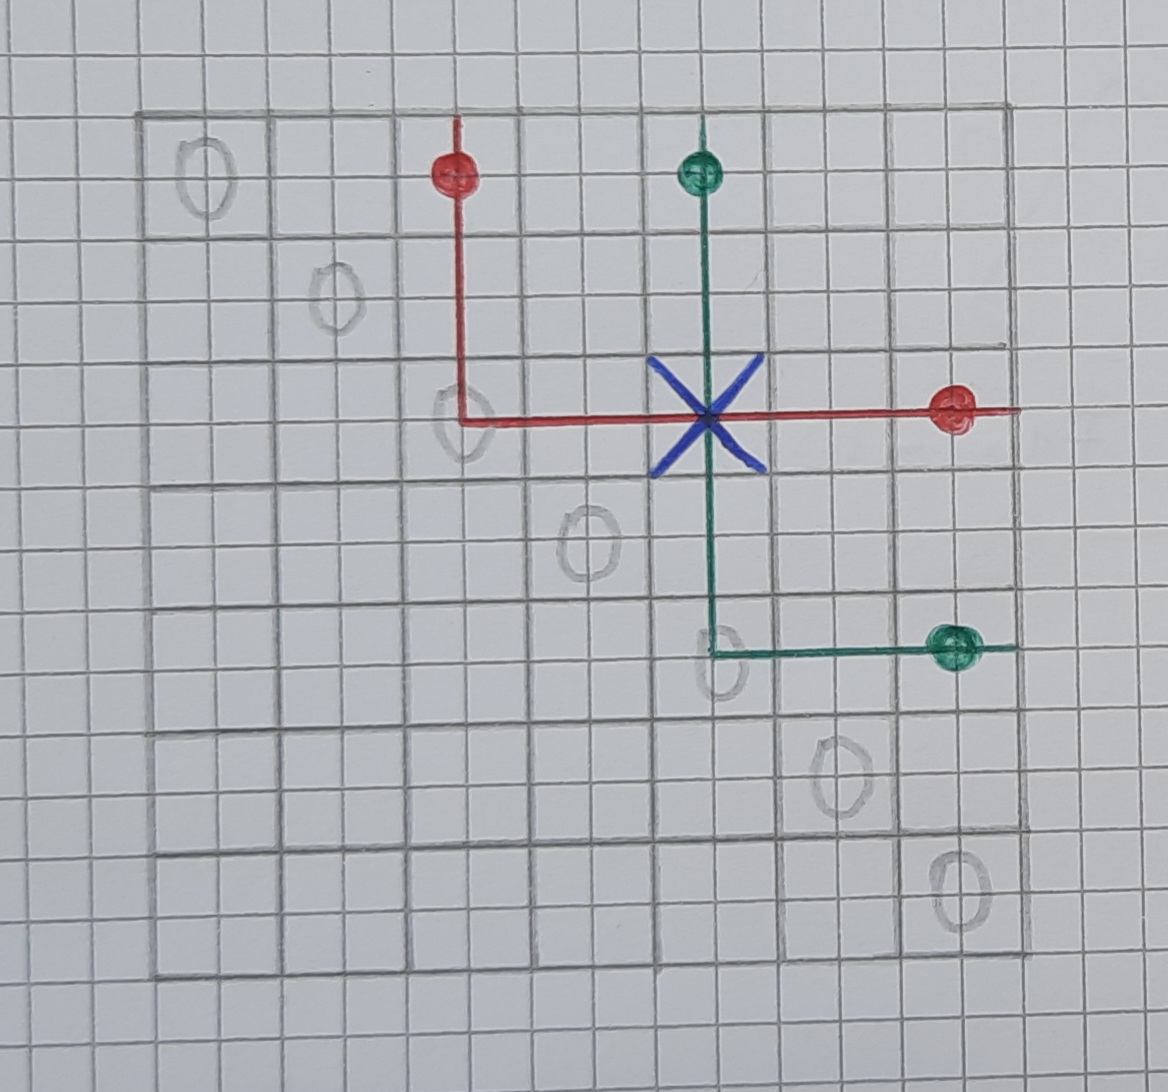 0
0
0
0
0
0
0